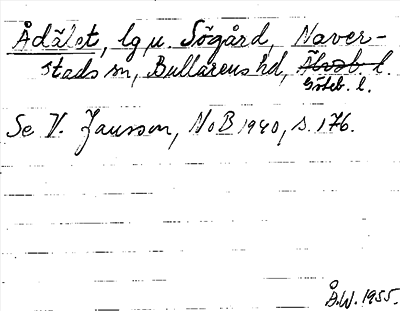 Ådålet, lg u. Sögård, Naver-
stads sn, Bullarens hd, Älvsb. l.
Göteb. l.
Se V. Jansson, NoB 1940, s. 176.
Å.W. 1955.